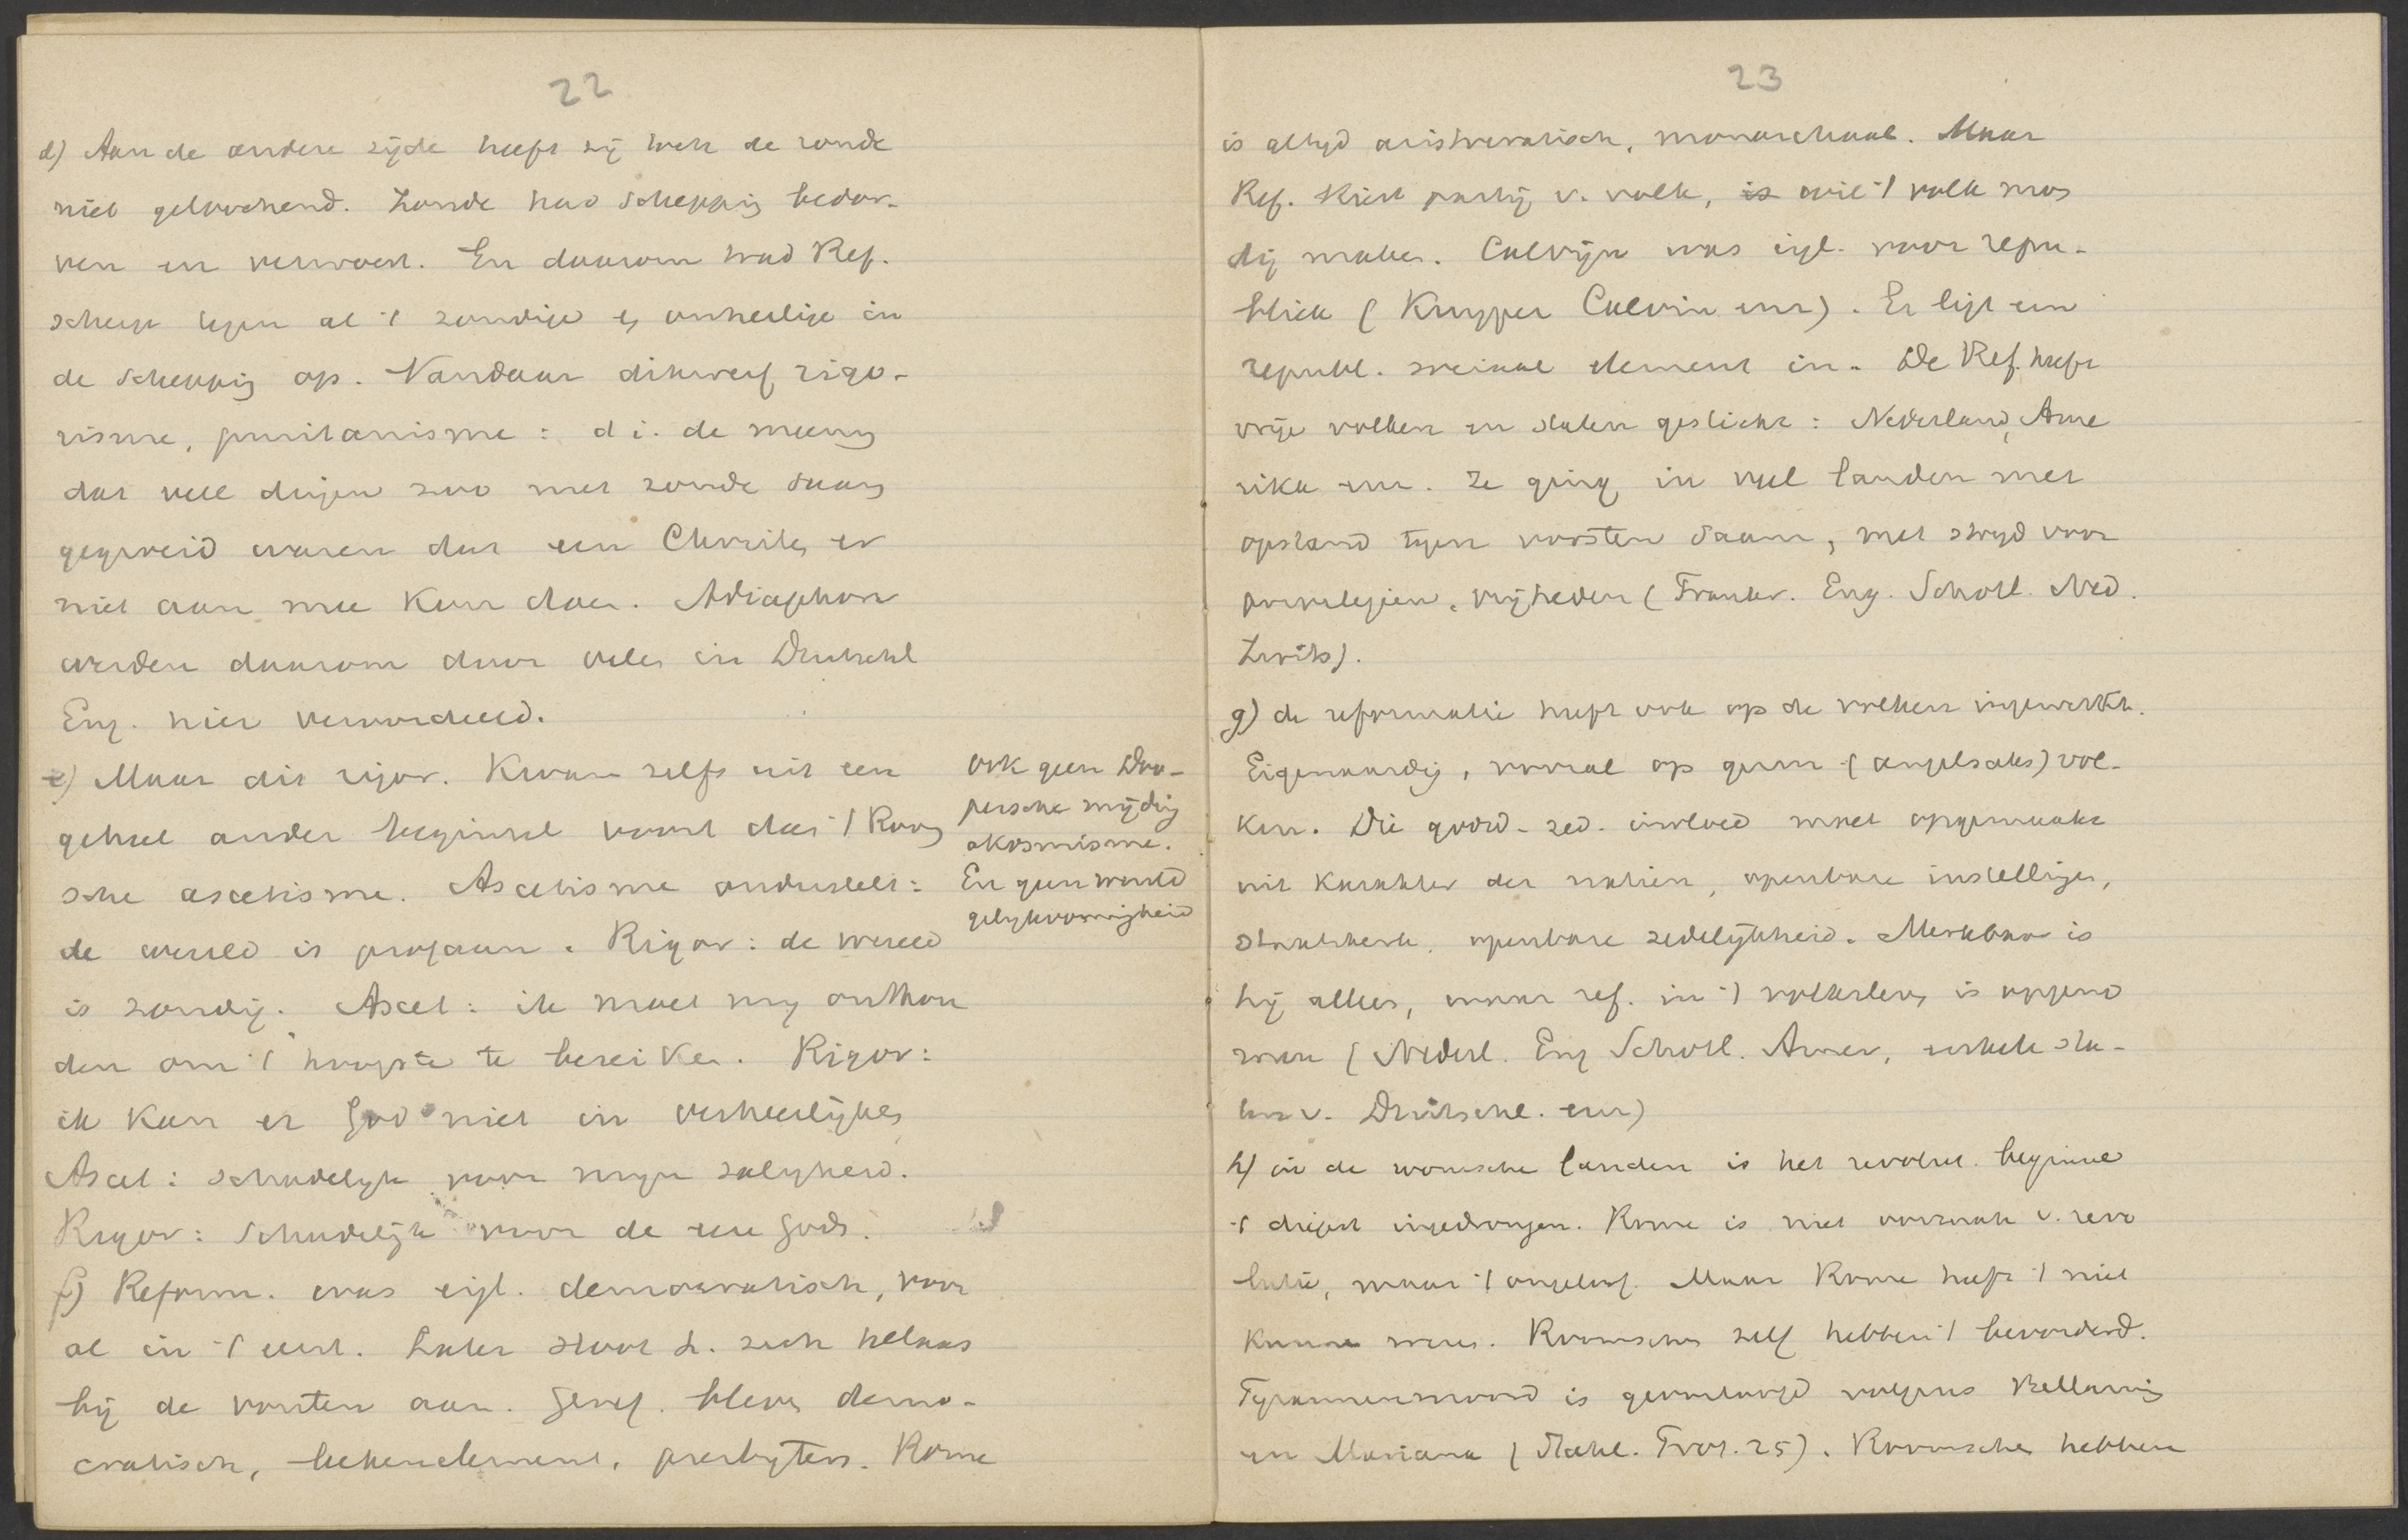 22
d) Aan de andere zijde heeft zij toch de zonde
niet geloochend. Zonde had schepping bedor-
ven en verwoest. En daarom trad Ref.
scherp tegen al 't zondige en onheilige in
de schepping op. Vandaar dikwerf rigo-
risme, puritanisme: d i. de meening
dat vele dingen zoo met zonde daarin
gegroeid waren dat een Christen er
niet aan mee kon doen. Adiaphora
werden daarom door velen in Duitschl
Eng. hier veroordeeld.
e) Maar dit rigor. kwam zelfs uit een
geheel ander beginsel voort dan 't Room
sche ascetisme. Ascetisme onderstelt:
de wereld is profaan. Rigor: de wereld
is zondig. Ascet: ik moet mij onthou
den om 't hoogste te bereiken. Rigor:
ik kan er God niet in verheerlijken
Ascet: schadelijk voor mijn zaligheid.
Rigor: schadelijk voor de eere Gods.
ook geen Doo-
persche mijding
akosmisme.
En geen wereld
gelijkvormigheid
f) Reform. was eigl. democratisch, voor
al in 't eerst. Later sloot L. zich helaas
bij de vorsten aan. Geref. bleven demo-
cratisch, leekenelement, presbyters. Rome
23
is altijd aristocratisch, monarchaal. Maar
Ref. kiest partij v. volk, is wil 't volk mon
dig maken. Calvijn was eigl. voor repu-
bliek (Kuyper Calvin enz). Er ligt een
republ. sociaal element in. De Ref. heeft
vrije volken en staten gesticht: Nederland, Ame
rika enz. Ze ging in veel landen met
opstand tegen vorsten saam, met strijd voor
privilegien, vrijheden (Frankr. Eng. Schotl. Ned.
Zwits).
g) de reformatie heeft ook op de volken ingewerkt.
Eigenaardig, vooral op germ (angelsaks) vol-
ken. Die godd-zed. invloed moet opgemaakt
uit karakter der natien, openbare instellingen,
staatskerk, openbare zedelijkheid. Merkbaar is
bij allen, waar ref. in 't volksleven is opgeno
men (Nederl. Eng Schotl. Amer, enkele sta-
ten v. Duitschl. enz)
h) in de roomsche landen is het revolut. beginsel
't diepst ingedrongen. Rome is niet oorzaak v. revo
lutie, maar 't ongeloof. Maar Rome heeft 't niet
kunnen weren. Roomschen zelf hebben 't bevorderd.
Tyrannenmoord is geoorloofd volgens Bellarmin
en Mariana (Stahl. Prot. 25). Roomschen hebben